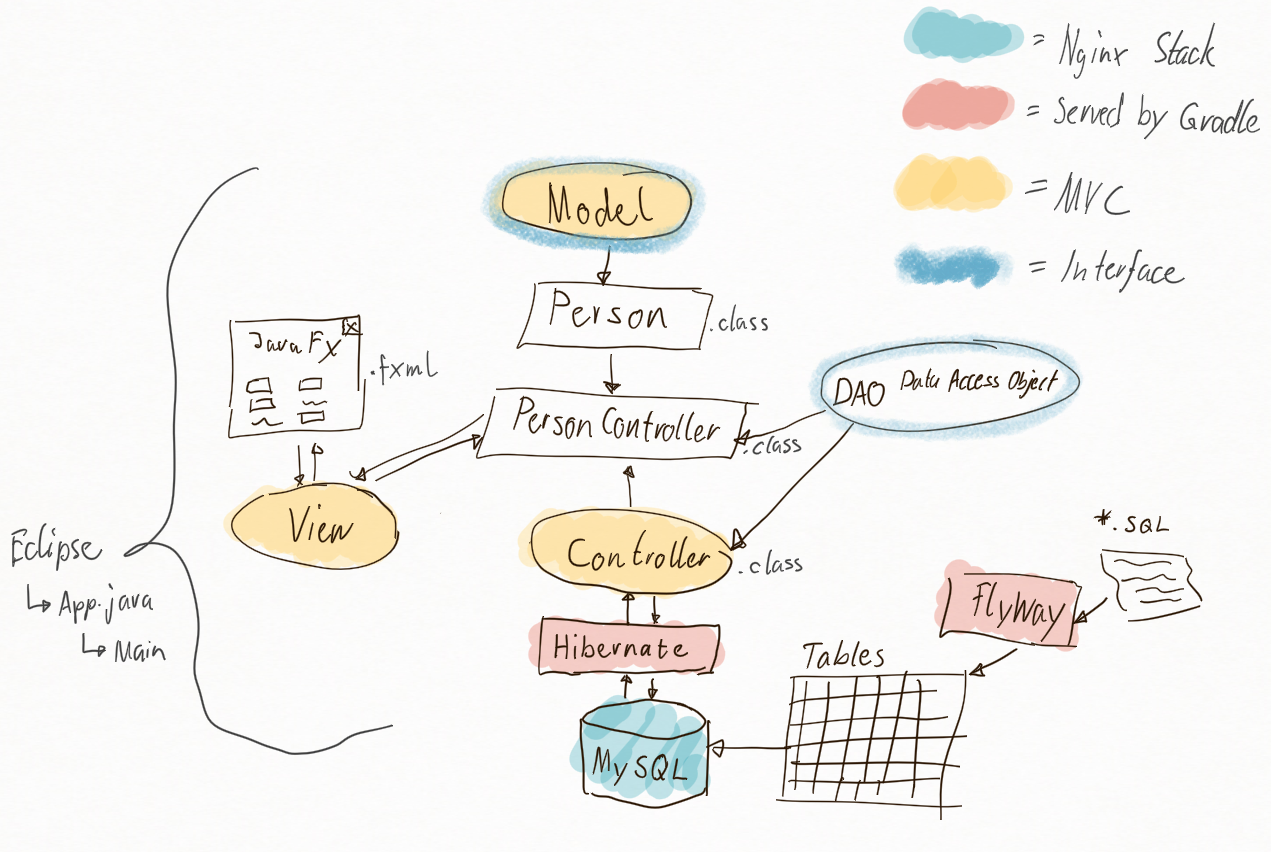 = Nginx Stack
= Served by Gradle
= MVC
= Interface
Model
Person
.class
JavaFx
x
.fxml
DAO Data Access Object
PersonController
.class
View
Controller
.class
Eclipse
App.java
Main
*.SQL
FlyWay
Hibernate
Tables
MySQL